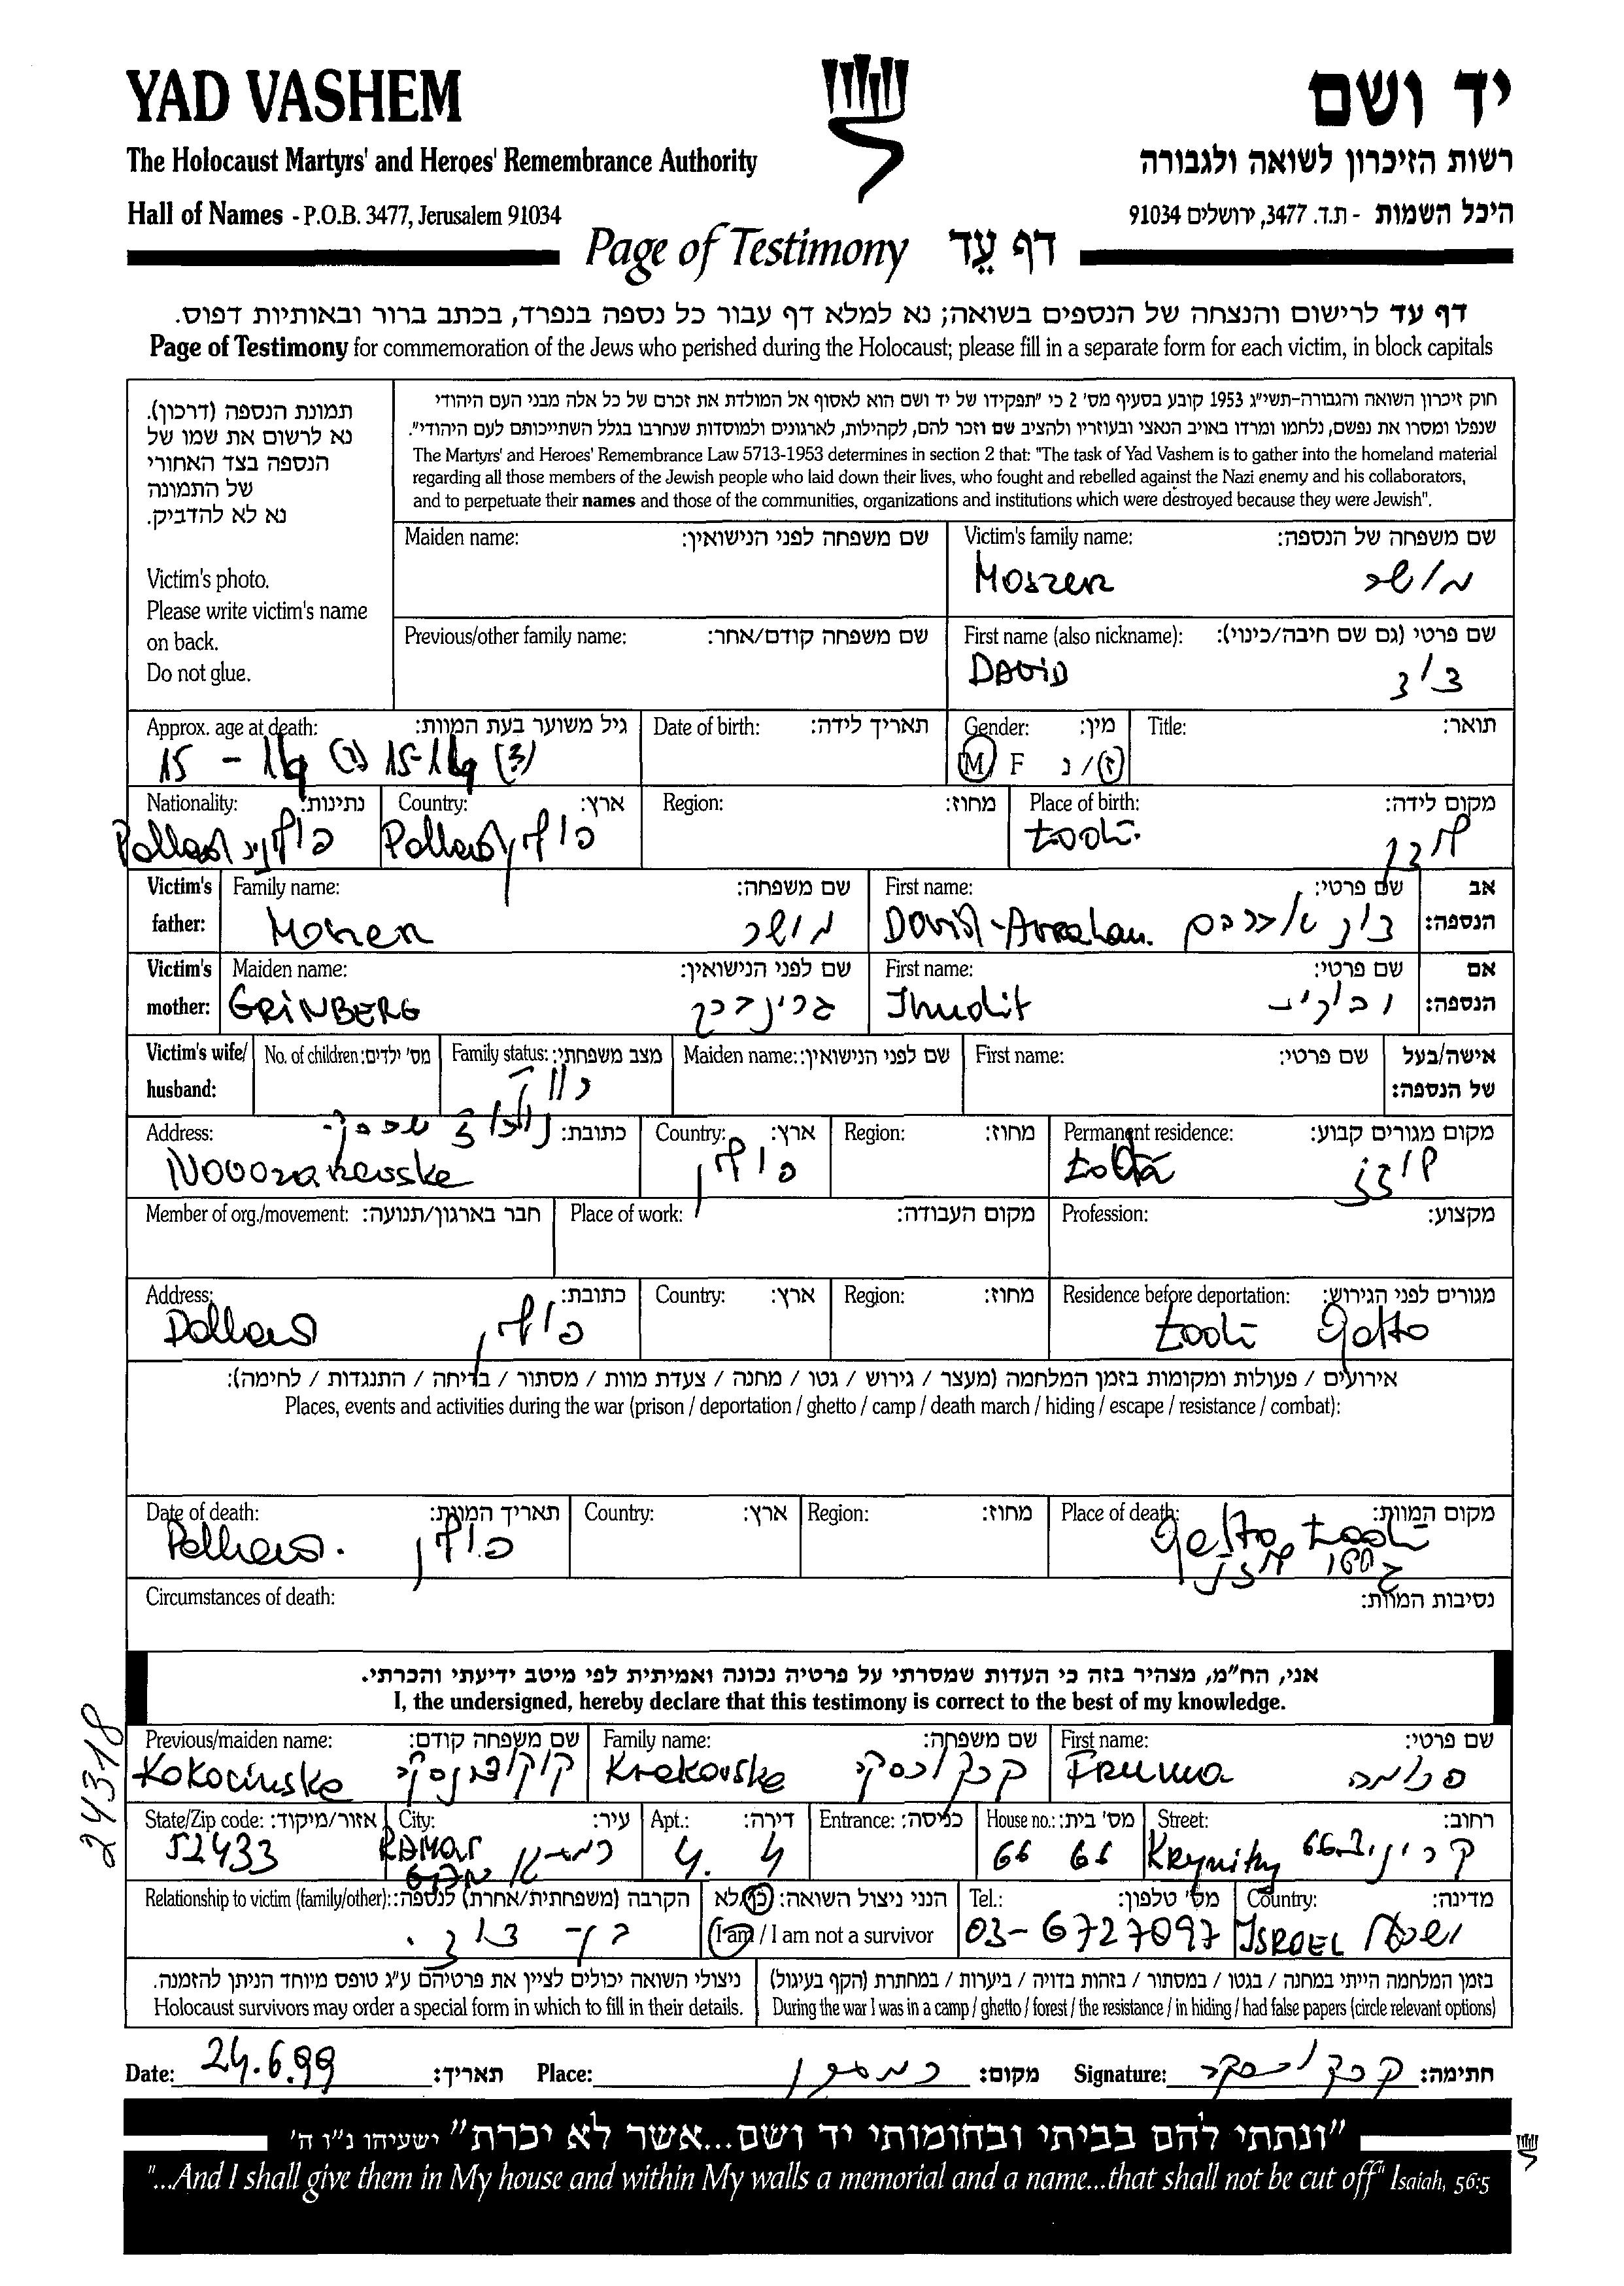 YAD VASHEM
יד ושם
The Holocaust Martyrs' and Heroes' Remembrance Authority
רשות הזיכרון לשואה ולגבורה
Hall of Names - P.O.B. 3477, Jerusalem 91034
היכל השמות - ת.ד. 3477, ירושלים 91034
Page of Testimony דף עֵד
דף עד לרישום והנצחה של הנספים בשואה; נא למלא דף עבור כל נספה בנפרד, בכתב ברור ובאותיות דפוס.
Page of Testimony for commemoration of the Jews who perished during the Holocaust; please fill in a separate form for each victim, in block capitals
תמונת הנספה (דרכון).
נא לרשום את שמו של
הנספה בצד האחורי
של התמונה
נא לא להדביק.
Victim's photo.
Please write victim's name
on back.
Do not glue.
חוק זיכרון השואה והגבורה-תשי"ג 1953 קובע בסעיף מס' 2 כי "תפקידו של יד ושם הוא לאסוף אל המולדת את זכרם של כל אלה מבני העם היהודי
שנפלו ומסרו את נפשם, נלחמו ומרדו באויב הנאצי ובעוזריו ולהציב שם וזכר להם, לקהילות, לארגונים ולמוסדות שנחרבו בגלל השתייכותם לעם היהודי".
The Martyrs' and Heroes' Remembrance Law 5713-1953 determines in section 2 that: "The task of Yad Vashem is to gather into the homeland material
regarding all those members of the Jewish people who laid down their lives, who fought and rebelled against the Nazi enemy and his collaborators,
and to perpetuate their names and those of the communities, organizations and institutions which were destroyed because they were Jewish".
Maiden name: שם משפחה לפני הנישואין:
Victim's family name: שם משפחה של הנספה:
Moszer מושר
Previous/other family name: שם משפחה קודם/אחר:
First name (also nickname): שם פרטי (גם שם חיבה/כינוי):
DAVID דוד
Approx. age at death: גיל משוער בעת המוות:
Date of birth: תאריך לידה:
Gender: מין:
Title: תואר:
M F ז/נ
Nationality: נתינות:
Country: ארץ:
Region: מחוז:
Place of birth: מקום לידה:
פולני פולין Łodź לודז
Victim's father: Family name: שם משפחה: First name: שם פרטי: אב הנספה:
Moszer מושר David-Avraham דוד אברהם
Victim's mother: Maiden name: שם לפני הנישואין: First name: שם פרטי: אם הנספה:
GRINBERG גרינברג Ihudit
Victim's wife/ husband: No. of children: מס' ילדים: Family status: מצב משפחתי: Maiden name: שם לפני הנישואין: First name: שם פרטי: אישה/בעל של הנספה:
Address: כתובת: Country: ארץ: Region: מחוז: Permanent residence: מקום מגורים קבוע:
פולין Łodź לודז
Member of org./movement: חבר בארגון/תנועה: Place of work: מקום העבודה: Profession: מקצוע:
Address: כתובת: Country: ארץ: Region: מחוז: Residence before deportation: מגורים לפני הגירוש:
פולין Łodź Getto
אירועים / פעולות ומקומות בזמן המלחמה (מעצר / גירוש / גטו / מחנה / צעדת מוות / מסתור / בריחה / התנגדות / לחימה):
Places, events and activities during the war (prison / deportation / ghetto / camp / death march / hiding / escape / resistance / combat):
Date of death: תאריך המוות: Country: ארץ: Region: מחוז: Place of death: מקום המוות:
פולין Getto Łodź
גטו לודז
Circumstances of death: נסיבות המוות:
אני, הח"מ, מצהיר בזה כי העדות שמסרתי על פרטיה נכונה ואמיתית לפי מיטב ידיעתי והכרתי.
I, the undersigned, hereby declare that this testimony is correct to the best of my knowledge.
24318
Previous/maiden name: שם משפחה קודם: Family name: שם משפחה: First name: שם פרטי:
Kokocinska קוקוצ'ינסקי Krakovska קרקובסקי Fruma פרומה
State/Zip code: אזור/מיקוד: City: עיר: Apt.: דירה: Entrance: כניסה: House no.: מס' בית: Street: רחוב:
52433 RAMAT רמת גן 4. 4 66 66 Krynitzy קריניצי 66
Relationship to victim (family/other): הקרבה (משפחתית/אחרת) לנספה: הנני ניצול השואה: כן/לא Tel.: מס' טלפון: Country: מדינה:
I am / I am not a survivor
בן דוד. 03-6727097 ISROEL ישראל
ניצולי השואה יכולים לציין את פרטיהם ע"ג טופס מיוחד הניתן להזמנה.
Holocaust survivors may order a special form in which to fill in their details.
בזמן המלחמה הייתי במחנה / בגטו / במסתור / בזהות בדויה / ביערות / במחתרת (הקף בעיגול)
During the war I was in a camp / ghetto / forest / the resistance / in hiding / had false papers (circle relevant options)
Date: 24.6.99 תאריך: Place: רמת גן מקום: Signature: קרקובסקי חתימה:
"ונתתי להם בביתי ובחומותי יד ושם...אשר לא יכרת" ישעיהו נ"ו ה'
"...And I shall give them in My house and within My walls a memorial and a name...that shall not be cut off" Isaiah, 56:5